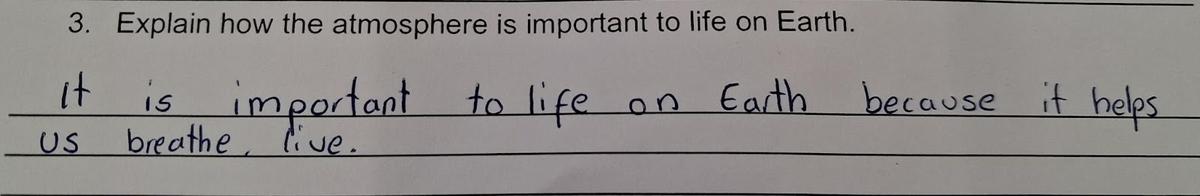 3. Explain how the atmosphere is important to life on Earth.
it is important to life on Earth because it helps
us breathe, live.